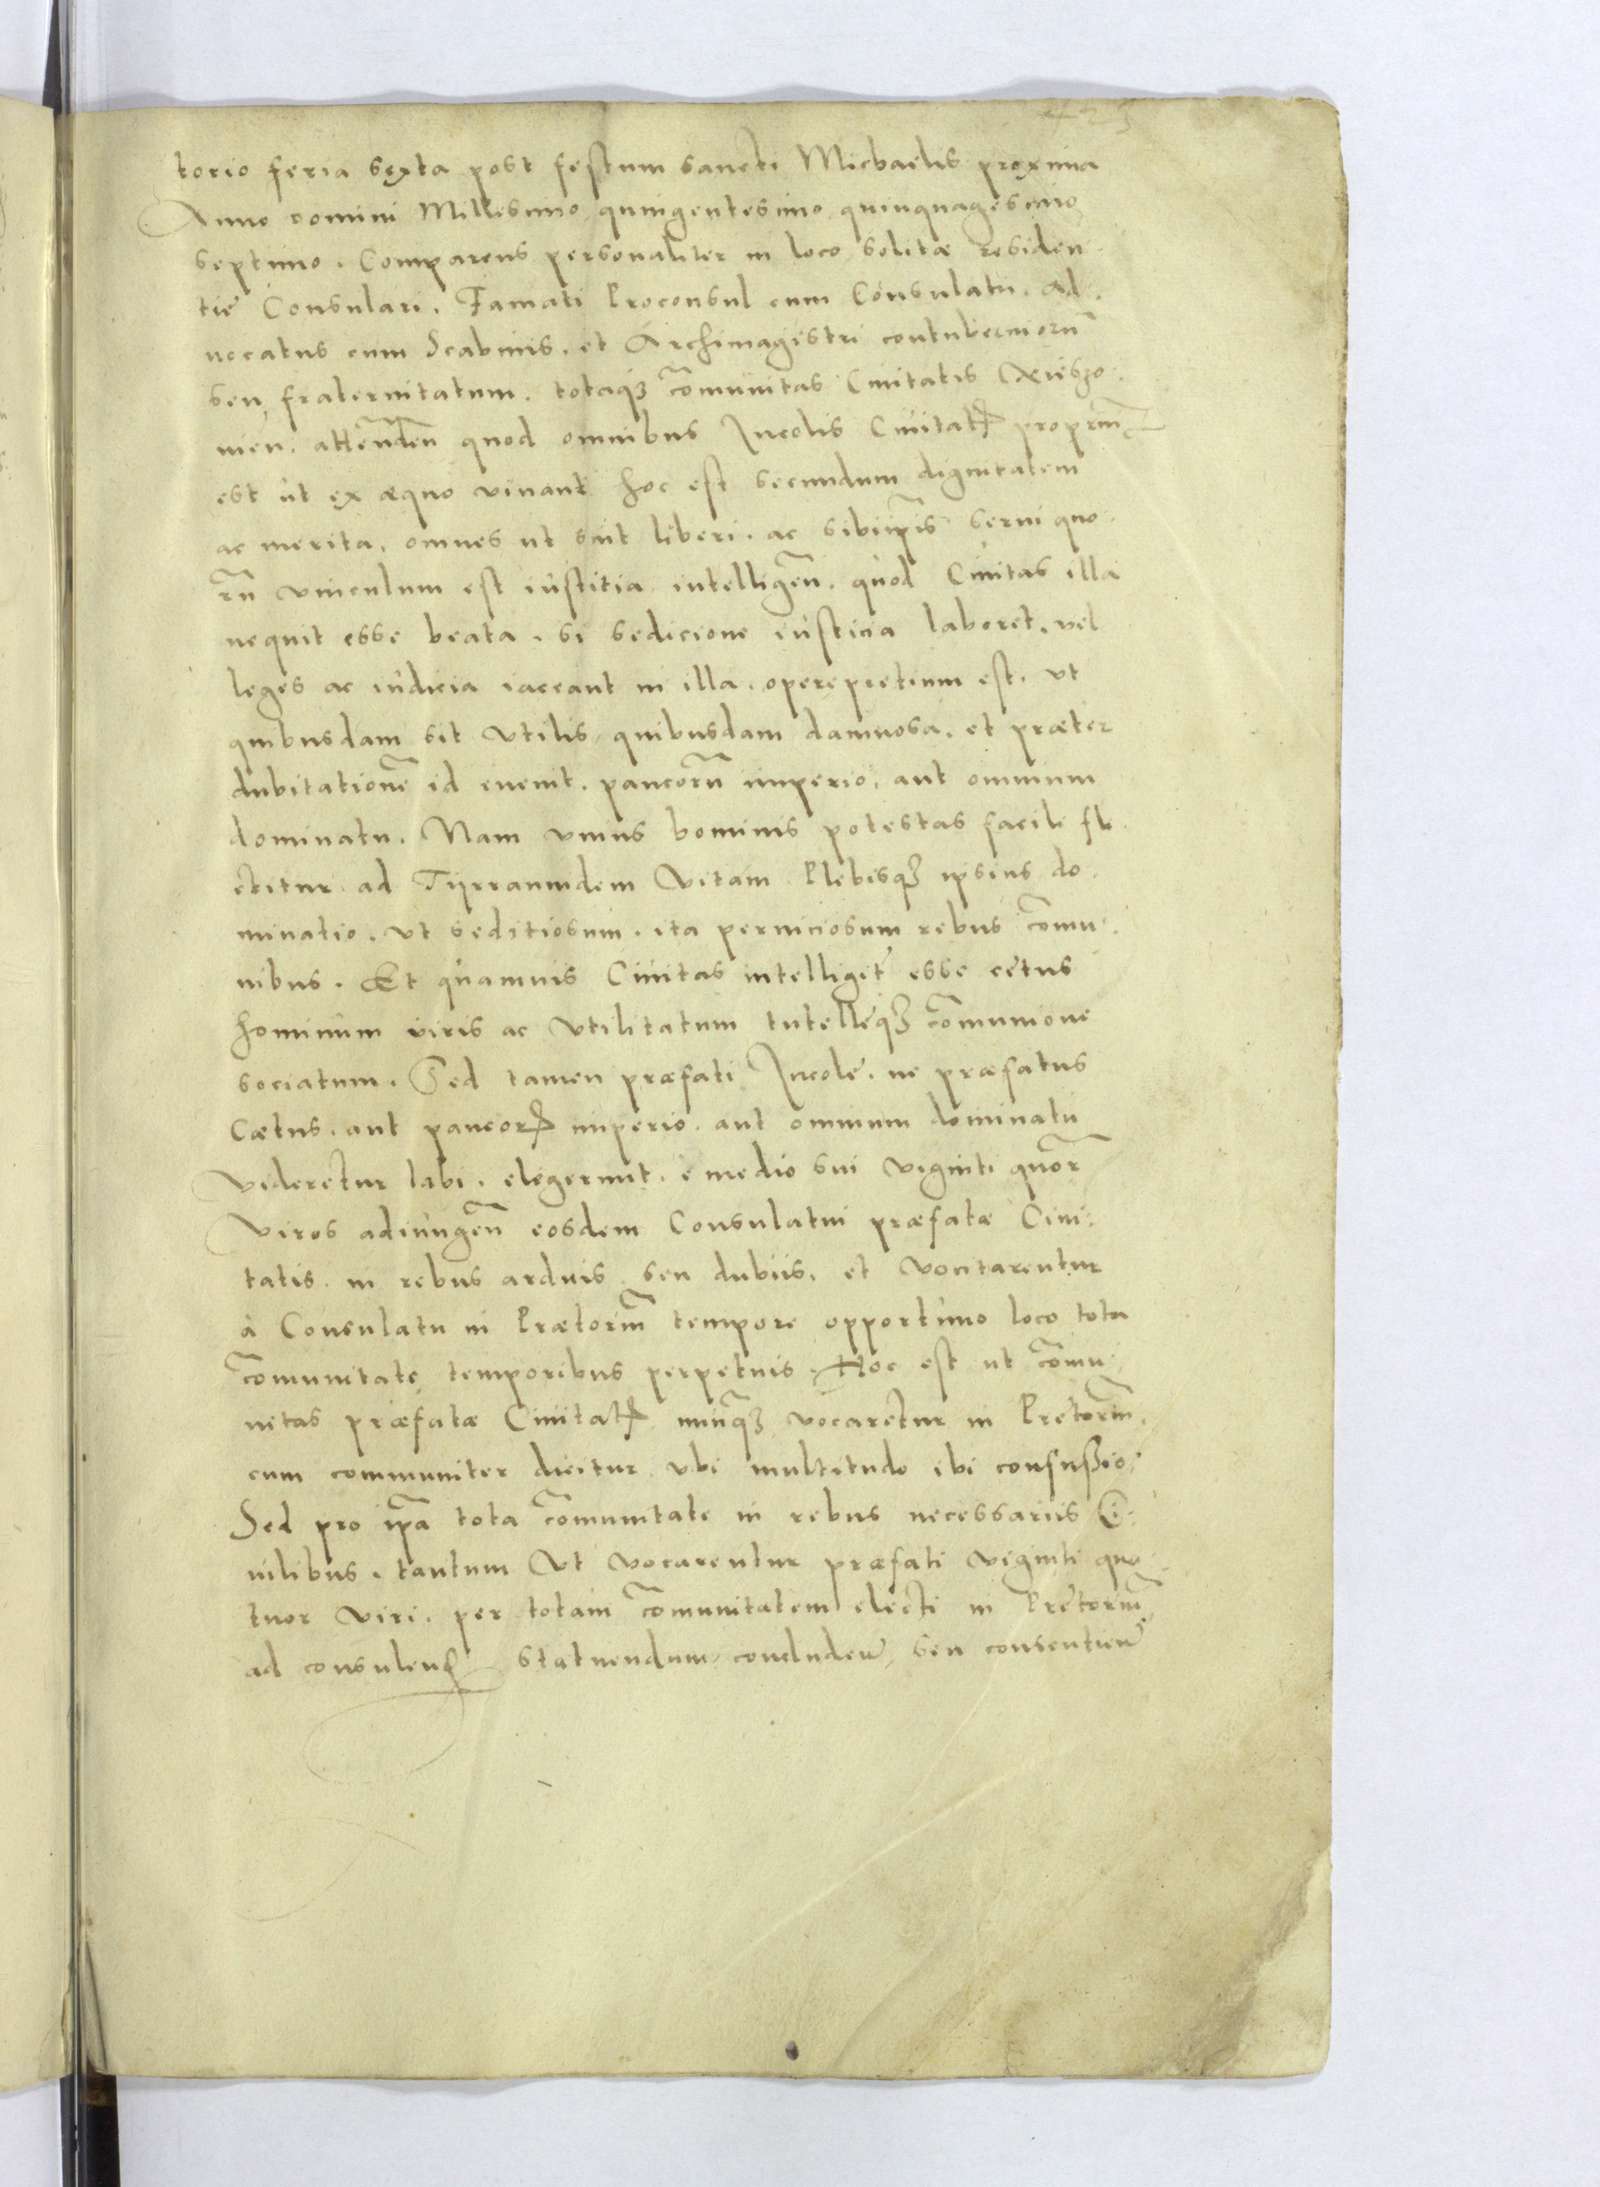 torio feria sexta post festum sancti Michaelis proxima
Anno domini Millesimo quingentesimo quinquagesimo
septimo. Comparens personaliter in loco solitæ residen
tie Consulari. Famati Proconsul cum Consulatu. Ad
uocatus cum Scabinis. et Archimagistri contuberniorũ
seu fraternitatum. totaqꝫ cõmunitas Ciuitatis
men. attendeñ quod omnibus Incolis Ciuitatꝭ propriũ
est ut ex æquo viuant hoc est secundum dignitatem
ac merita, omnes ut sint liberi. ac sibiip̃is serui quo
rũ vinculum est iustitia intelligeñ. quod Ciuitas illa
nequit esse beata. si sedicione iusticia laboret. vel
leges ac iudicia iaceant in illa. operepretium est. vt
quibusdam sit vtilis quibusdam damnosa. et præter
dubitationẽ id euenit. paucorũ imperio. aut omnium
dominatu. Nam vnius hominis potestas facile fle
ctitur ad Tyrrannidem Vitam Plebisqꝫ ipsius do
minatio. vt seditiosum. ita perniciosum rebus cõmu
nibus. Et quamuis Ciuitas intelligetʳ esse cetus
hominum iuris ac vtilitatum tutelleqꝫ cõmunione
sociatum. Sed tamen præfati Incole. ne præfatus
Cætus. aut paucorꝝ imperio. aut omnium dominatu
videretur labi. elegerunt. e medio sui viginti quor̃
viros adiungeñ eosdem Consulatui præfatæ Ciui
tatis in rebus arduis seu dubiis. et vocitarentur
à Consulatu in Prætoriũ tempore opportuno loco tota
cõmunitate temporibus perpetuis. Hoc est ut cõmu
nitas præfatæ Ciuitatꝭ nunqꝫ vocaretur in Pretoriũ.
cum communiter dicitur vbi multitudo ibi confusio.
Sed pro ip̃a tota cõmunitate in rebus necessariis Ci
uilibus. tantum Vt vocarentur præfati viginti qua
tuor viri. per totam cõmunitatem electi in Pretoriũ
ad consulenꝭ statuendum concludeñ seu consentieñ